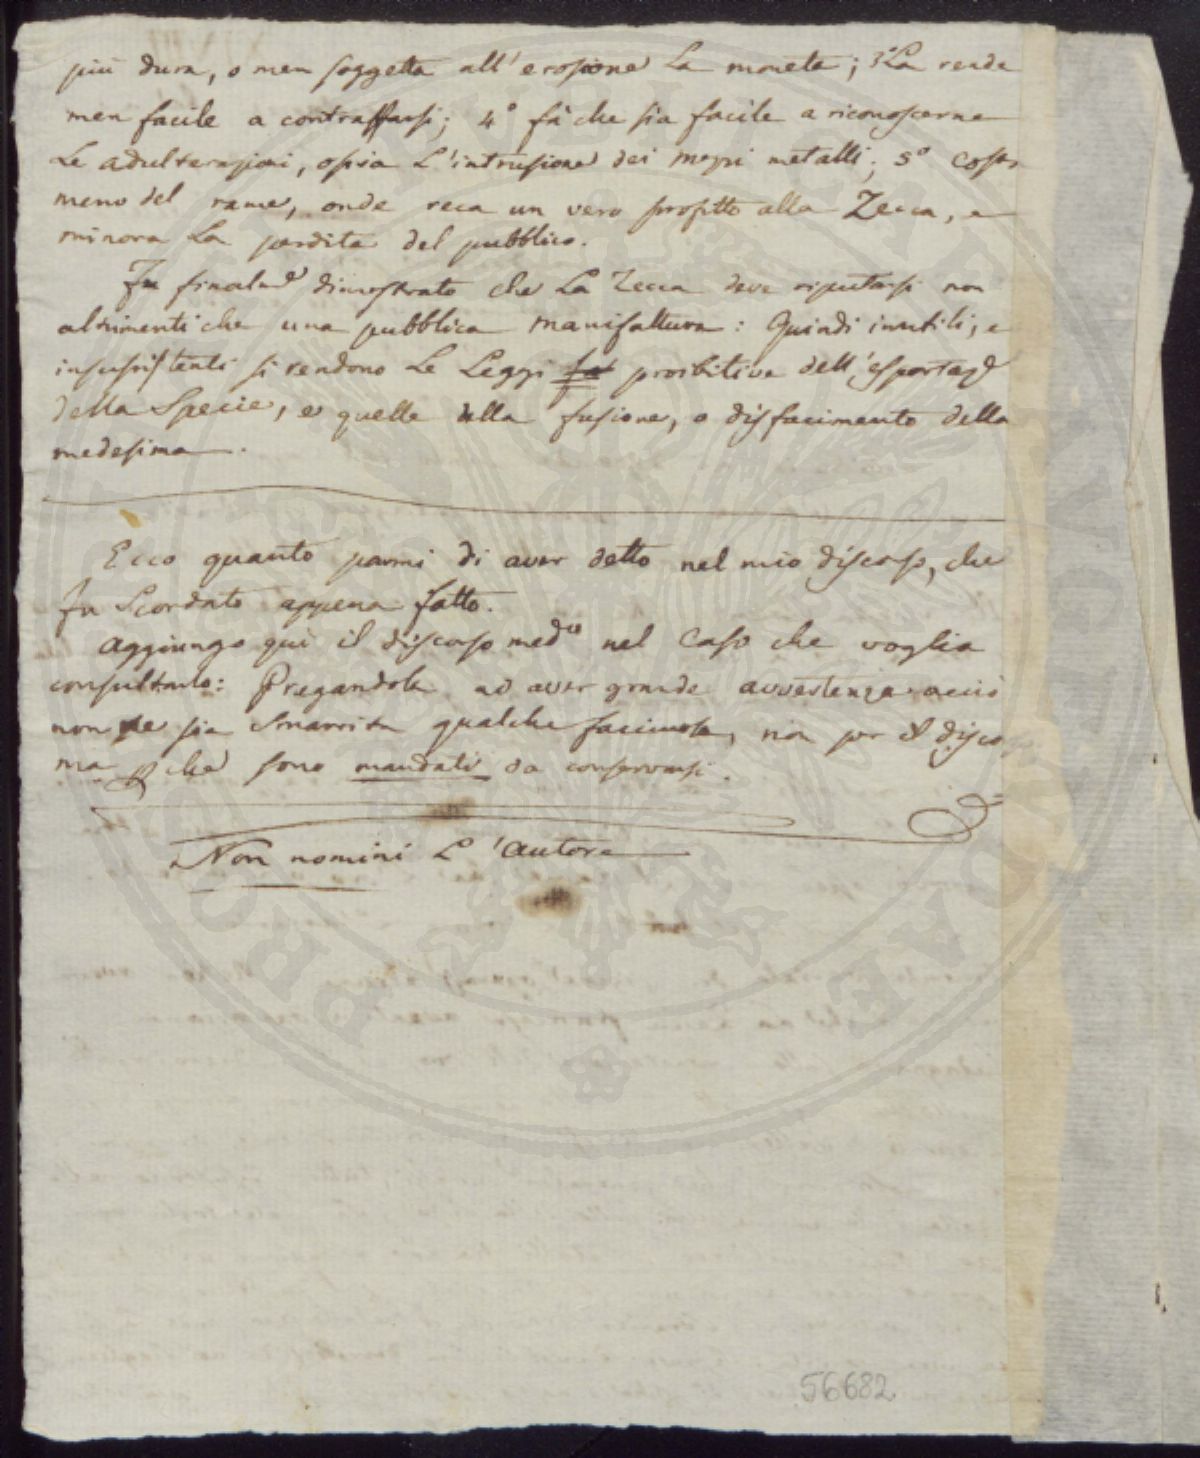 più dura, o men soggetta all'erosione la moneta; 3° La rende
men facile a contraffarsi; 4° fà che sia facile a riconoscerne
le adulterazioni, ossia l'intrusione dei metalli; 5° costa
meno del rame, onde reca un vero profitto alla Zecca, e
minora la perdita del pubblico.
Fu finalm.e dimostrato che la Zecca deve riputarsi non
altrimenti che una pubblica manifattura: Quindi inutili, e
insussistenti si rendono le Leggi proibitive dell'esportaz.e
della Specie, e quelle della fusione, o disfacimento della
medesima.
Ecco quanto parmi di aver detto nel mio discorso, che
fu scordato appena fatto.
Aggiungo quì il discorso med.o nel caso che voglia
consultarlo: Pregandola ad aver grande avvertenza acciò
non se sia smarrita qualche, non per il disco
ma che sono mandati da conservarsi.
Non nomini l'autore
56682
PROV
CAVE